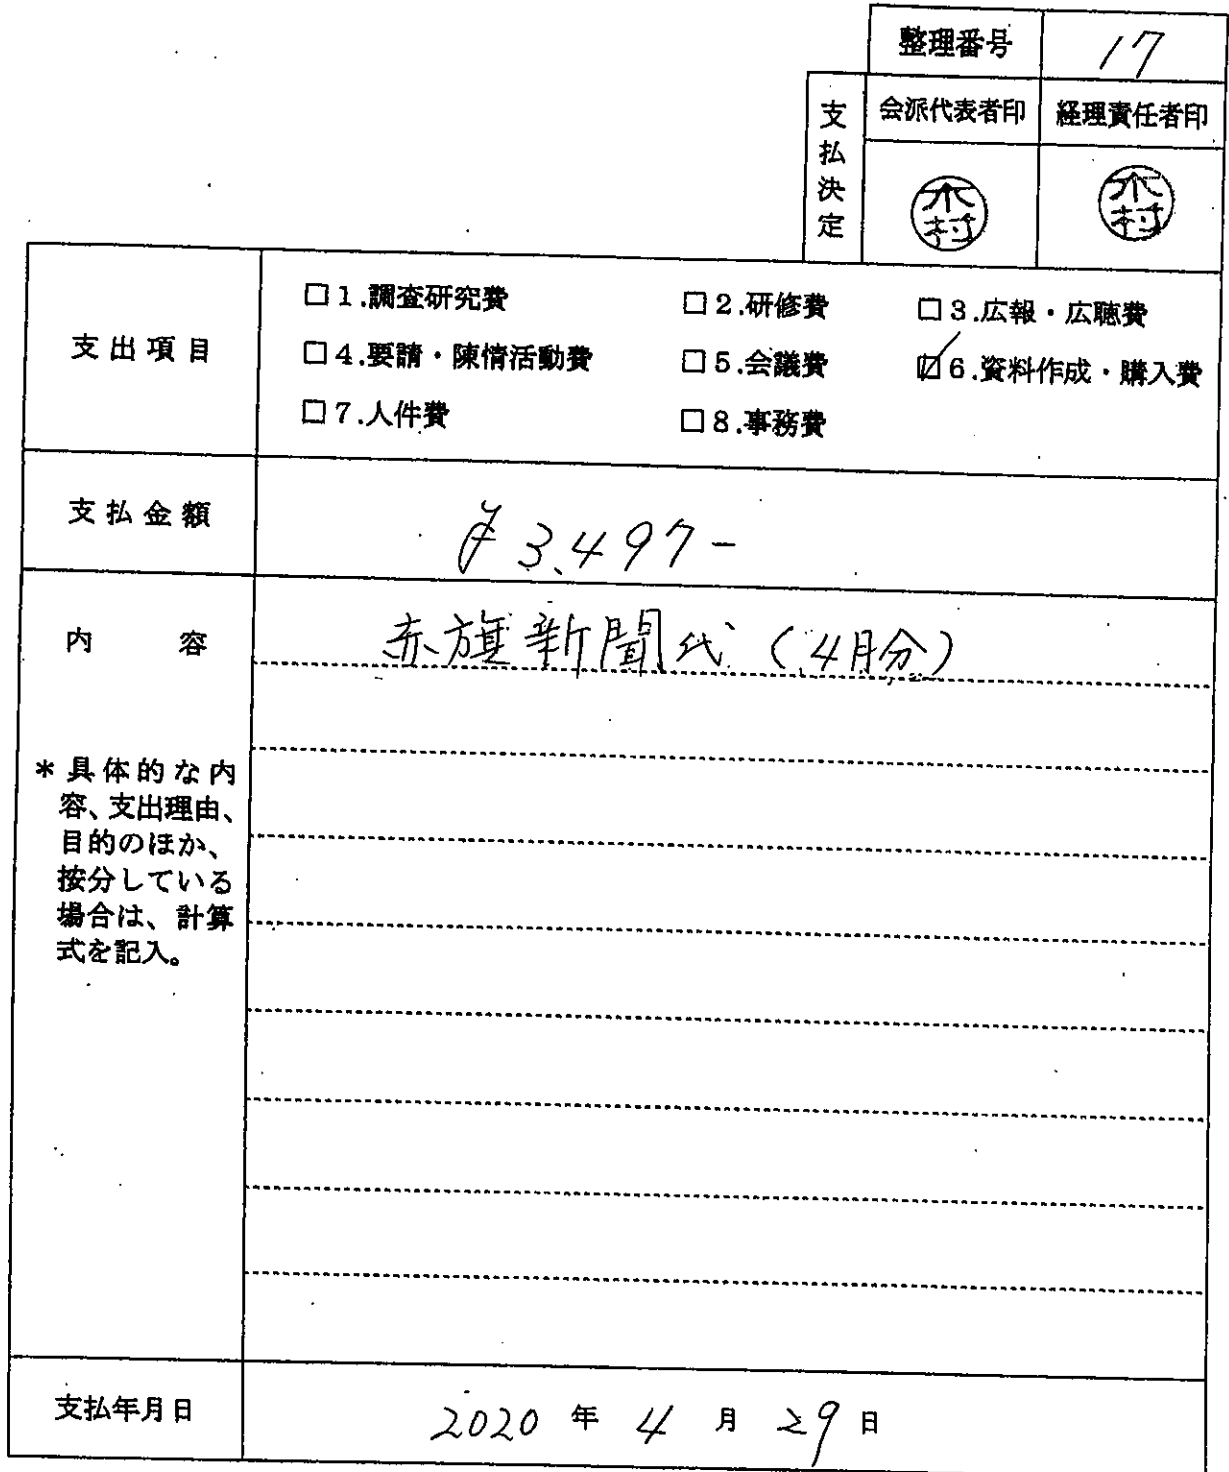 整理番号 17
支払決定 会派代表者印 経理責任者印
木村 木村
支出項目
□1.調査研究費 □2.研修費 □3.広報・広聴費
□4.要請・陳情活動費 □5.会議費 ☑6.資料作成・購入費
□7.人件費 □8.事務費
支払金額 ¥3,497-
内容 赤旗新聞代(4月分)
*具体的な内
容、支出理由、
目的のほか、
按分している
場合は、計算
式を記入。
支払年月日 2020年4月29日